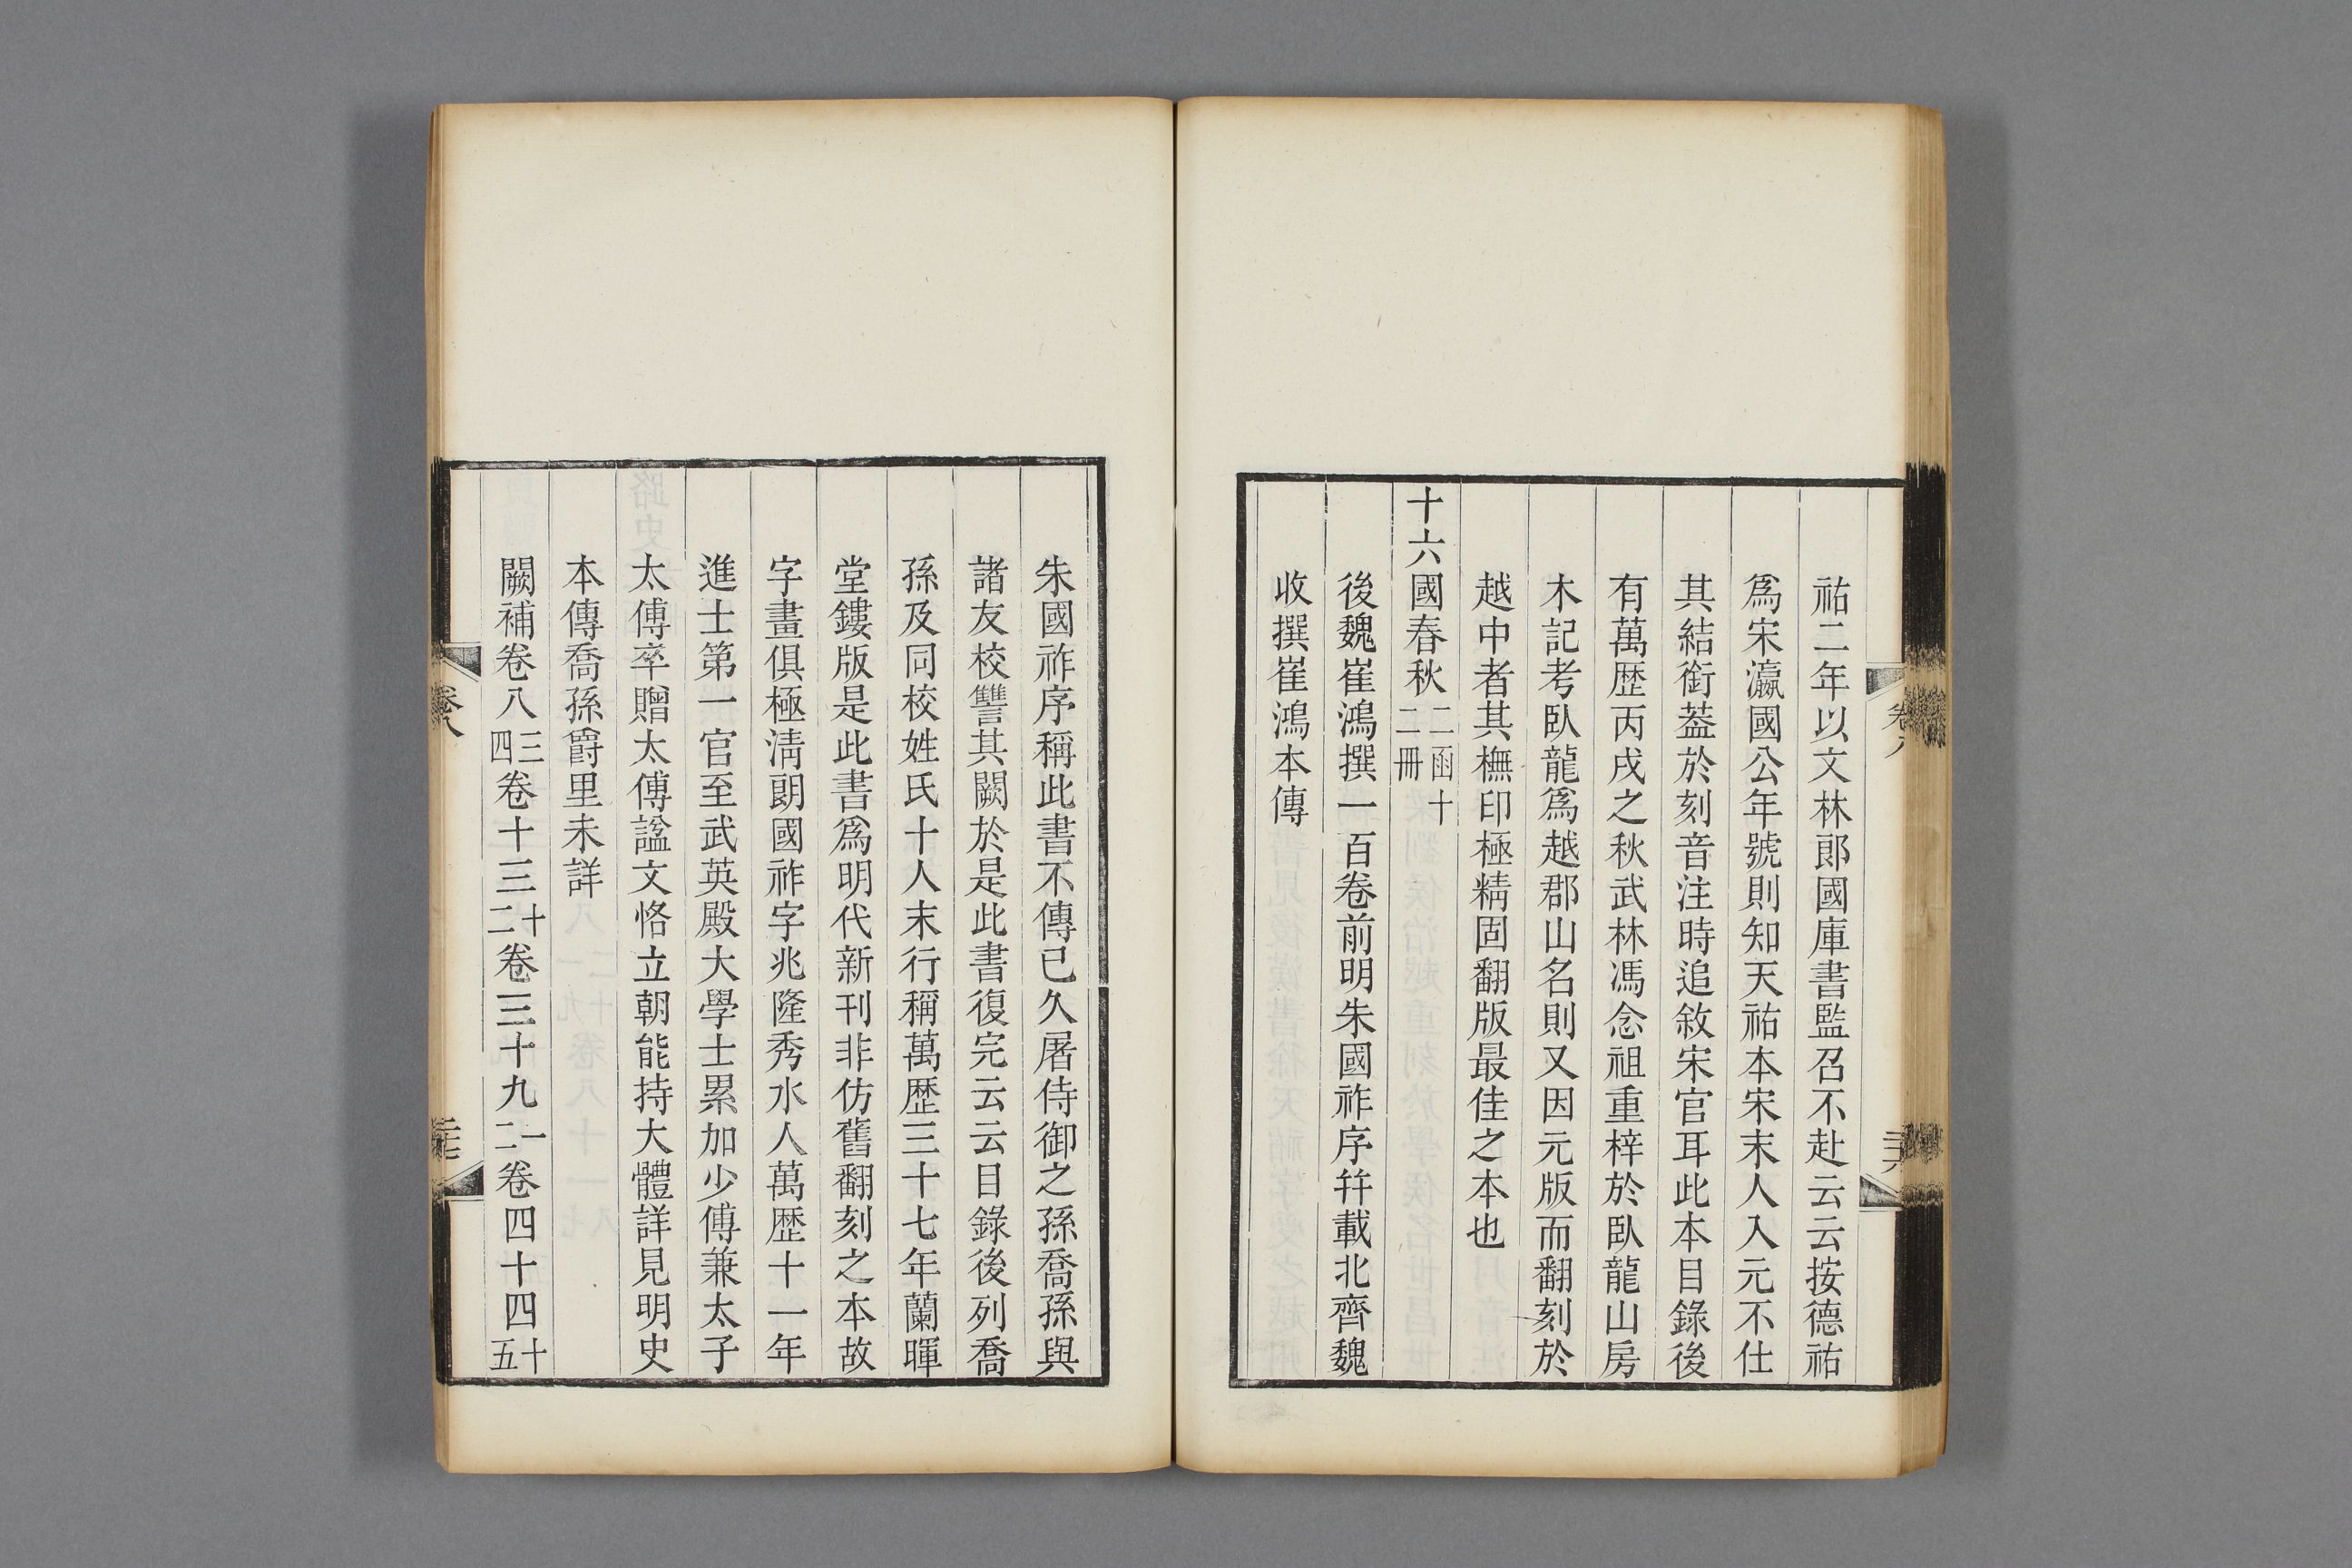 祐二年以文林郞國庫書監召不赴云云按德祐
爲宋瀛國公年號則知天祐本宋末人入元不仕
其結銜葢於刻音注時追敘宋官耳此本目錄後
有萬歷丙戌之秋武林馮念祖重梓於臥龍山房
木記考臥龍爲越郡山名則又因元版而翻刻於
越中者其橅印極精固翻版最佳之本也
十六國春秋二函十二冊
後魏崔鴻撰一百卷前明朱國祚序幷載北齊魏
收撰崔鴻本傳
卷八
三十六
朱國祚序稱此書不傳已久屠侍御之孫喬孫與
諸友校讐其闕於是此書復完云云目錄後列喬
孫及同校姓氏十人末行稱萬歷三十七年蘭暉
堂鏤版是此書爲明代新刊非仿舊翻刻之本故
字畫俱極淸朗國祚字兆隆秀水人萬歷十一年
進士第一官至武英殿大學士累加少傅兼太子
太傅卒贈太傅諡文恪立朝能持大體詳見明史
本傳喬孫爵里未詳
闕補卷八三四卷十三十二卷三十九一二卷四十四十五
卷八
三十七